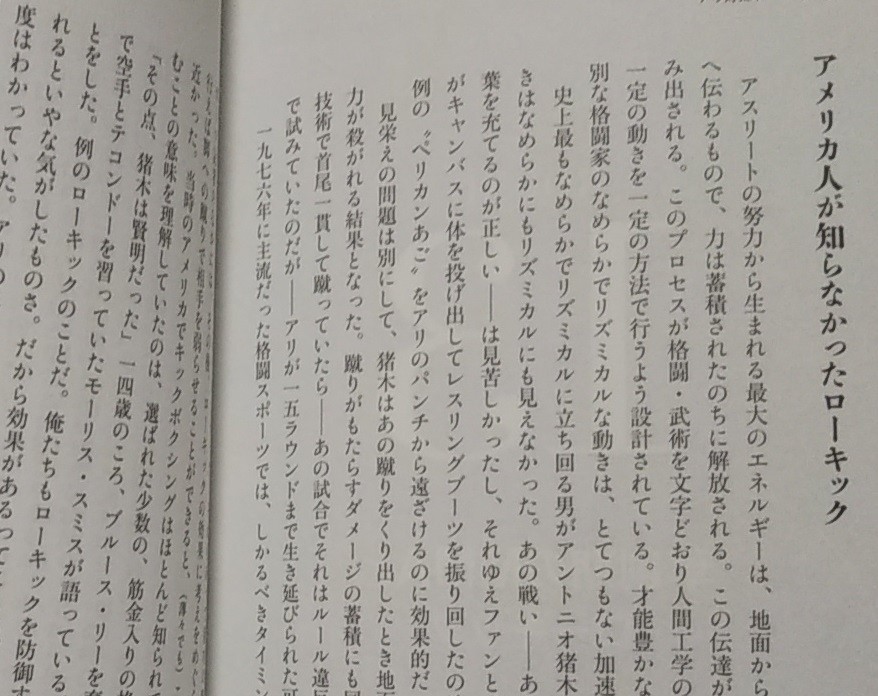 アメリカ人が知らなかったローキック
アスリートの努力から生まれる最大のエネルギーは、地面から
へ伝わるもので、力は蓄積されたのちに解放される。この伝達が
み出される。このプロセスが格闘・武術を文字どおり人間工学の
一定の動きを一定の方法で行うよう設計されている。才能豊かな
別な格闘家のなめらかでリズミカルな動きは、とてつもない加速
史上最もなめらかでリズミカルに立ち回る男がアントニオ猪木
きはなめらかにもリズミカルにも見えなかった。あの戦い——あ
葉を充てるのが正しい——は見苦しかったし、それゆえファンと
がキャンバスに体を投げ出してレスリングブーツを振り回したの
例の〝ペリカンあご〟をアリのパンチから遠ざけるのに効果的だ
見栄えの問題は別にして、猪木はあの蹴りをくり出したとき地面
力が殺がれる結果となった。蹴りがもたらすダメージの蓄積にも
技術で首尾一貫して蹴っていたら——あの試合でそれはルール違反
で試みていたのだが——アリが一五ラウンドまで生き延びられた可
一九七六年に主流だった格闘スポーツでは、しかるべきタイミン
ローキックの効果に考えをめぐ
近かった。当時のアメリカでキックボクシングはほとんど知られて
むことの意味を理解していたのは、選ばれた少数の、筋金入りの格
「その点、猪木は賢明だった」一四歳のころ、ブルース・リーを
で空手とテコンドーを習っていたモーリス・スミスが語っている
とをした。例のローキックのことだ。俺たちもローキックを防御す
れるといやな気がしたものさ。だから効果があるって
度はわかっていた。アリの